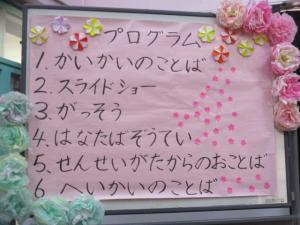 プログラム
1. かいかいのことば
2. スライドショー
3. がっそう
4. はなたばぞうてい
5. せんせいがたからのおことば
6 へいかいのことば